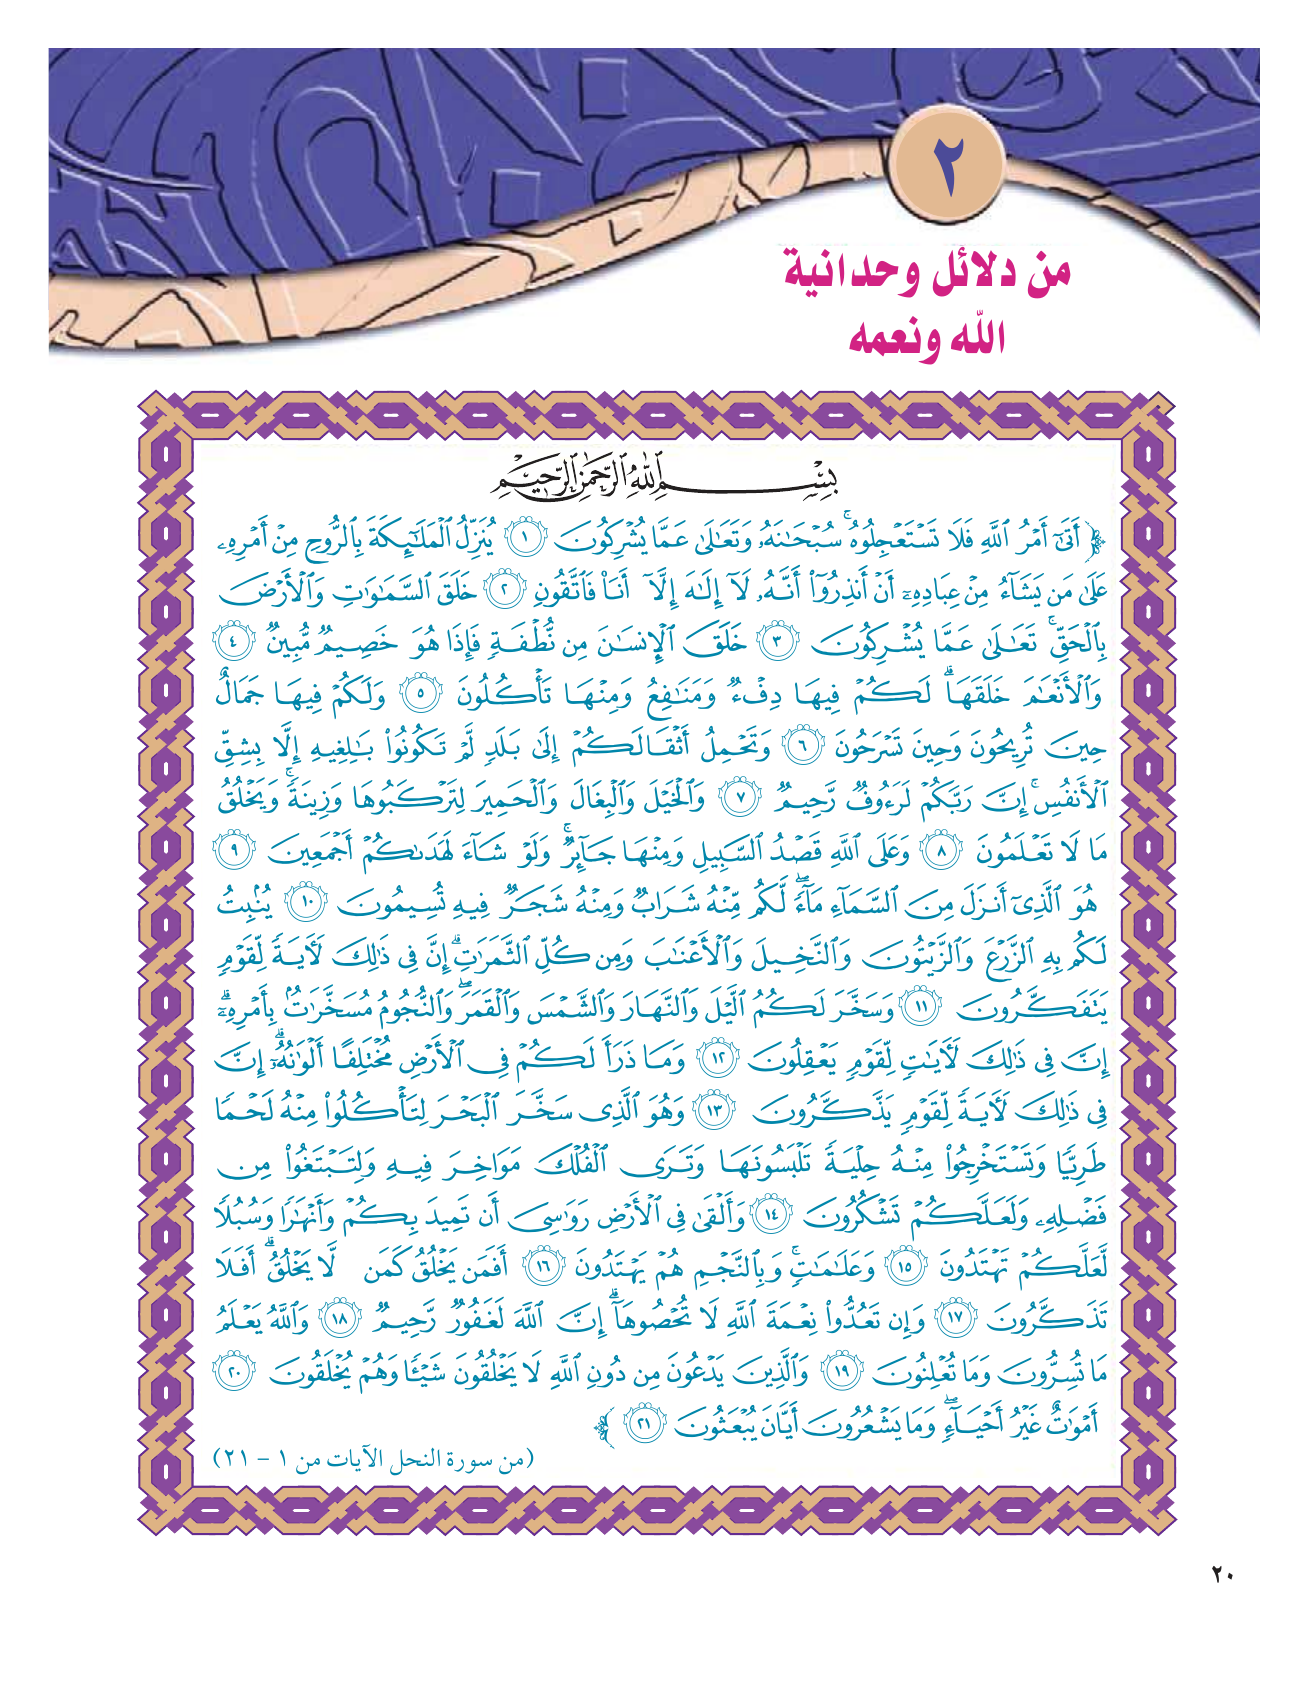 ٢
من دلائل وحدانية
الله ونعمه
بِسْمِ ٱللَّهِ ٱلرَّحْمَٰنِ ٱلرَّحِيمِ
﴿ أَتَىٰٓ أَمْرُ ٱللَّهِ فَلَا تَسْتَعْجِلُوهُ ۚ سُبْحَٰنَهُۥ وَتَعَٰلَىٰ عَمَّا يُشْرِكُونَ ١ يُنَزِّلُ ٱلْمَلَٰٓئِكَةَ بِٱلرُّوحِ مِنْ أَمْرِهِۦ
عَلَىٰ مَن يَشَآءُ مِنْ عِبَادِهِۦٓ أَنْ أَنذِرُوٓا۟ أَنَّهُۥ لَآ إِلَٰهَ إِلَّآ أَنَا۠ فَٱتَّقُونِ ٢ خَلَقَ ٱلسَّمَٰوَٰتِ وَٱلْأَرْضَ
بِٱلْحَقِّ ۚ تَعَٰلَىٰ عَمَّا يُشْرِكُونَ ٣ خَلَقَ ٱلْإِنسَٰنَ مِن نُّطْفَةٍ فَإِذَا هُوَ خَصِيمٌ مُّبِينٌ ٤
وَٱلْأَنْعَٰمَ خَلَقَهَا ۗ لَكُمْ فِيهَا دِفْءٌ وَمَنَٰفِعُ وَمِنْهَا تَأْكُلُونَ ٥ وَلَكُمْ فِيهَا جَمَالٌ
حِينَ تُرِيحُونَ وَحِينَ تَسْرَحُونَ ٦ وَتَحْمِلُ أَثْقَالَكُمْ إِلَىٰ بَلَدٍ لَّمْ تَكُونُوا۟ بَٰلِغِيهِ إِلَّا بِشِقِّ
ٱلْأَنفُسِ ۚ إِنَّ رَبَّكُمْ لَرَءُوفٌ رَّحِيمٌ ٧ وَٱلْخَيْلَ وَٱلْبِغَالَ وَٱلْحَمِيرَ لِتَرْكَبُوهَا وَزِينَةً ۚ وَيَخْلُقُ
مَا لَا تَعْلَمُونَ ٨ وَعَلَى ٱللَّهِ قَصْدُ ٱلسَّبِيلِ وَمِنْهَا جَآئِرٌ ۚ وَلَوْ شَآءَ لَهَدَىٰكُمْ أَجْمَعِينَ ٩
هُوَ ٱلَّذِىٓ أَنزَلَ مِنَ ٱلسَّمَآءِ مَآءً ۖ لَّكُم مِّنْهُ شَرَابٌ وَمِنْهُ شَجَرٌ فِيهِ تُسِيمُونَ ١٠ يُنۢبِتُ
لَكُم بِهِ ٱلزَّرْعَ وَٱلزَّيْتُونَ وَٱلنَّخِيلَ وَٱلْأَعْنَٰبَ وَمِن كُلِّ ٱلثَّمَرَٰتِ ۗ إِنَّ فِى ذَٰلِكَ لَءَايَةً لِّقَوْمٍ
يَتَفَكَّرُونَ ١١ وَسَخَّرَ لَكُمُ ٱلَّيْلَ وَٱلنَّهَارَ وَٱلشَّمْسَ وَٱلْقَمَرَ ۖ وَٱلنُّجُومُ مُسَخَّرَٰتٌۢ بِأَمْرِهِۦٓ ۗ
إِنَّ فِى ذَٰلِكَ لَءَايَٰتٍ لِّقَوْمٍ يَعْقِلُونَ ١٢ وَمَا ذَرَأَ لَكُمْ فِى ٱلْأَرْضِ مُخْتَلِفًا أَلْوَٰنُهُۥٓ ۗ إِنَّ
فِى ذَٰلِكَ لَءَايَةً لِّقَوْمٍ يَذَّكَّرُونَ ١٣ وَهُوَ ٱلَّذِى سَخَّرَ ٱلْبَحْرَ لِتَأْكُلُوا۟ مِنْهُ لَحْمًا
طَرِيًّا وَتَسْتَخْرِجُوا۟ مِنْهُ حِلْيَةً تَلْبَسُونَهَا وَتَرَى ٱلْفُلْكَ مَوَاخِرَ فِيهِ وَلِتَبْتَغُوا۟ مِن
فَضْلِهِۦ وَلَعَلَّكُمْ تَشْكُرُونَ ١٤ وَأَلْقَىٰ فِى ٱلْأَرْضِ رَوَٰسِىَ أَن تَمِيدَ بِكُمْ وَأَنْهَٰرًا وَسُبُلًا
لَّعَلَّكُمْ تَهْتَدُونَ ١٥ وَعَلَٰمَٰتٍ ۚ وَبِٱلنَّجْمِ هُمْ يَهْتَدُونَ ١٦ أَفَمَن يَخْلُقُ كَمَن لَّا يَخْلُقُ ۗ أَفَلَا
تَذَكَّرُونَ ١٧ وَإِن تَعُدُّوا۟ نِعْمَةَ ٱللَّهِ لَا تُحْصُوهَآ ۗ إِنَّ ٱللَّهَ لَغَفُورٌ رَّحِيمٌ ١٨ وَٱللَّهُ يَعْلَمُ
مَا تُسِرُّونَ وَمَا تُعْلِنُونَ ١٩ وَٱلَّذِينَ يَدْعُونَ مِن دُونِ ٱللَّهِ لَا يَخْلُقُونَ شَيْـًٔا وَهُمْ يُخْلَقُونَ ٢٠
أَمْوَٰتٌ غَيْرُ أَحْيَآءٍ ۖ وَمَا يَشْعُرُونَ أَيَّانَ يُبْعَثُونَ ٢١ ﴾
(من سورة النحل الآيات من ١ - ٢١)
٢٠